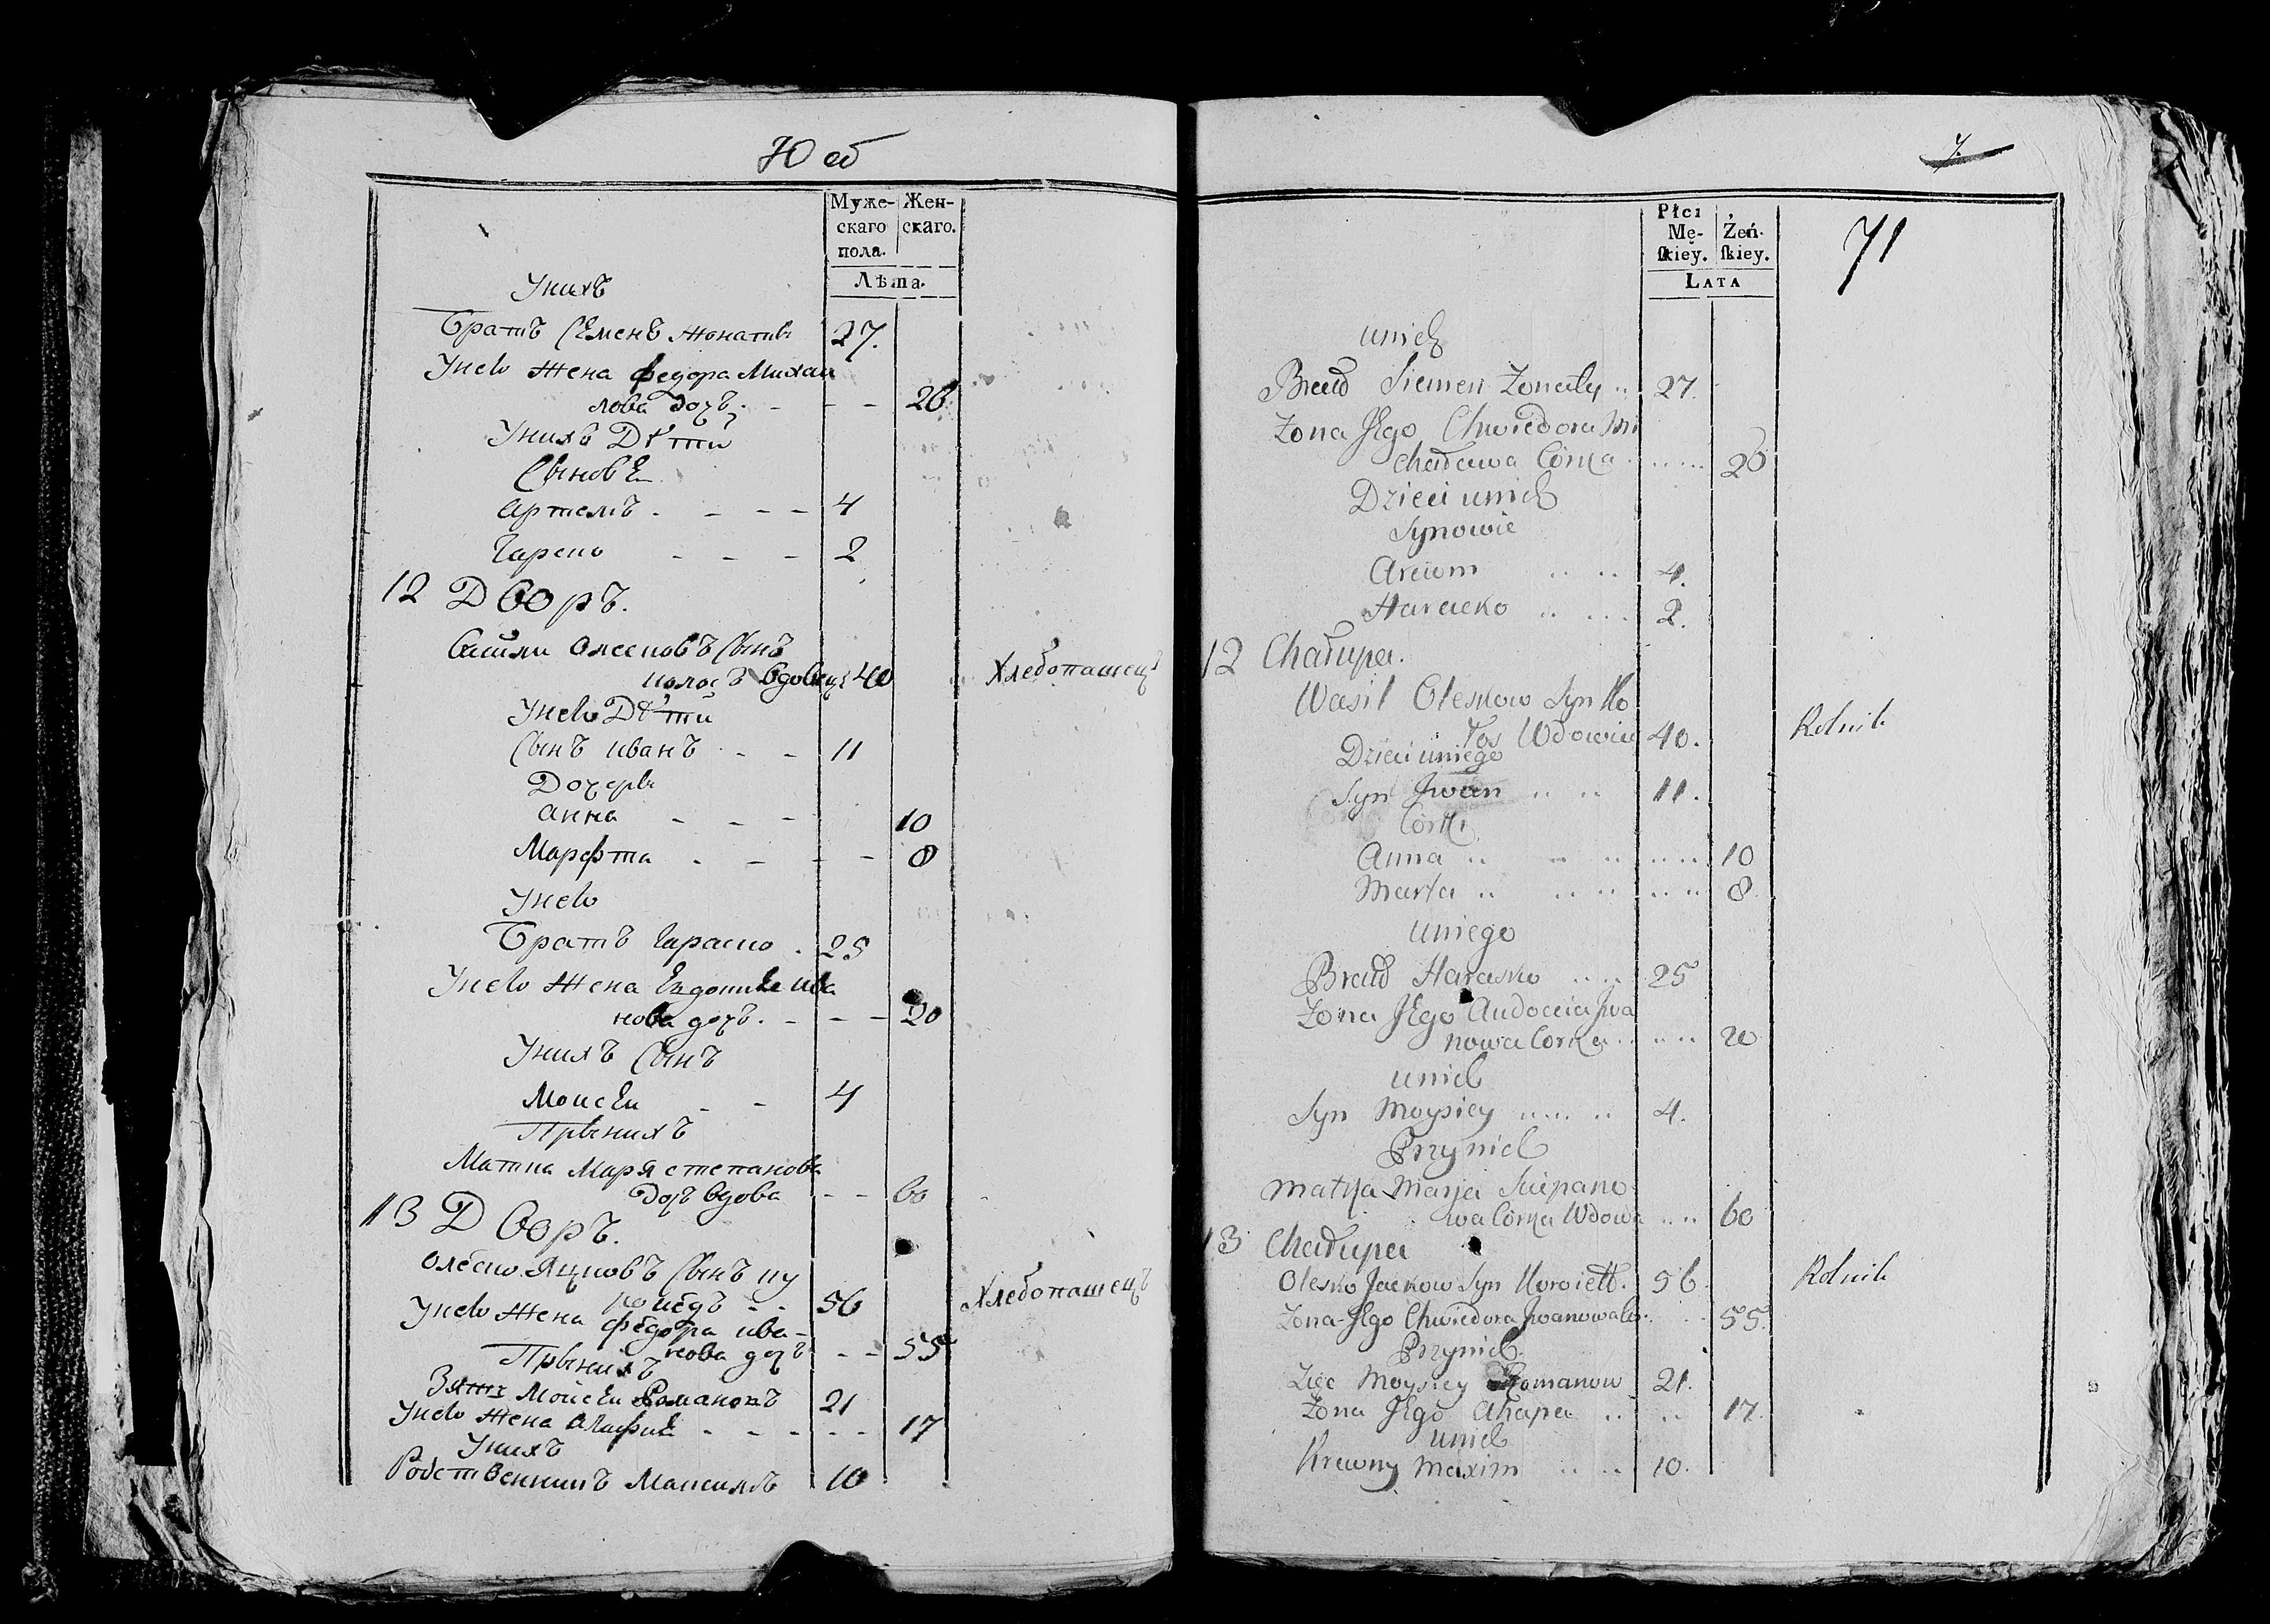 70 об
Муже-
скаго
пола.
Жен-
скаго.
Лѣта.
Унихъ
Братъ Семенъ жонатъ 27.
Унево жена федора Михаи
лова дочъ. - - - 26
Унихъ Дѣти
Сыновѣ
Артемъ. - - - 4
- - - 2
12 Дворъ.
Олесковъ Сынъ
вдовецъ 40 Хлебопашецъ
Унево Дѣти
Сынъ иванъ - - 11
Дочерѣ
анна - - - 10
Марфта - - - - 8
Унево
Братъ Гараско . 25
Унево жена Евдокиѣ ива
нова дочъ. - - - 20
Унихъ Сынъ
Моисѣи - - 4
Прѣнихъ
Матка Маря степанова
дочъ вдова - - 60
13 Дворъ.
Олеско Яцковъ Сынъ
56 Хлебопашецъ
Унево жена федора ива-
нова дочъ - - 55
Прѣнихъ
Зять Моисѣи Романовъ 21
Унево жена - - - - - 17
Унихъ
Родственникъ Максимъ 10
7.
71
Płci
Mę-
ſkiey.
Żeń-
ſkiey.
LATA
unich
Bratt Siemen Zonaty .. 27.
Zona Jego Chwiedora Mi
chałowa Córka ..... 26
Dzieci unich
Synowie
Arcium .. .. 4.
Haraśko .. ... 2.
12 Chałupa.
Wasil Oleskow Syn Ko
łos Wdowiec 40. Rolnik
Dzieci uniego
Syn Jwan .. .. 11.
Córki
Anna .. .. .. .. .. 10
Marta .. .. .. .. .. 8.
uniego
Bratt Harasko .. .. 25
Zona Jego Audoccia Jwa
nowa Corka .. .. .. 20
unich
Syn Moysiey .. .. .. 4.
Przynich
Matka Marja Sciepano
wa Córka Wdowa .. .. 60
13 Chałupa
Olesko Jackow Syn 56. Rolnik
Zona Jego Chwiedora Jwanowa .. 55.
Przynich.
Zięć Moysiey Romanow 21.
Zona Jego Ahapa .. .. 17.
unich
Krewny Maxim .. .. 10.